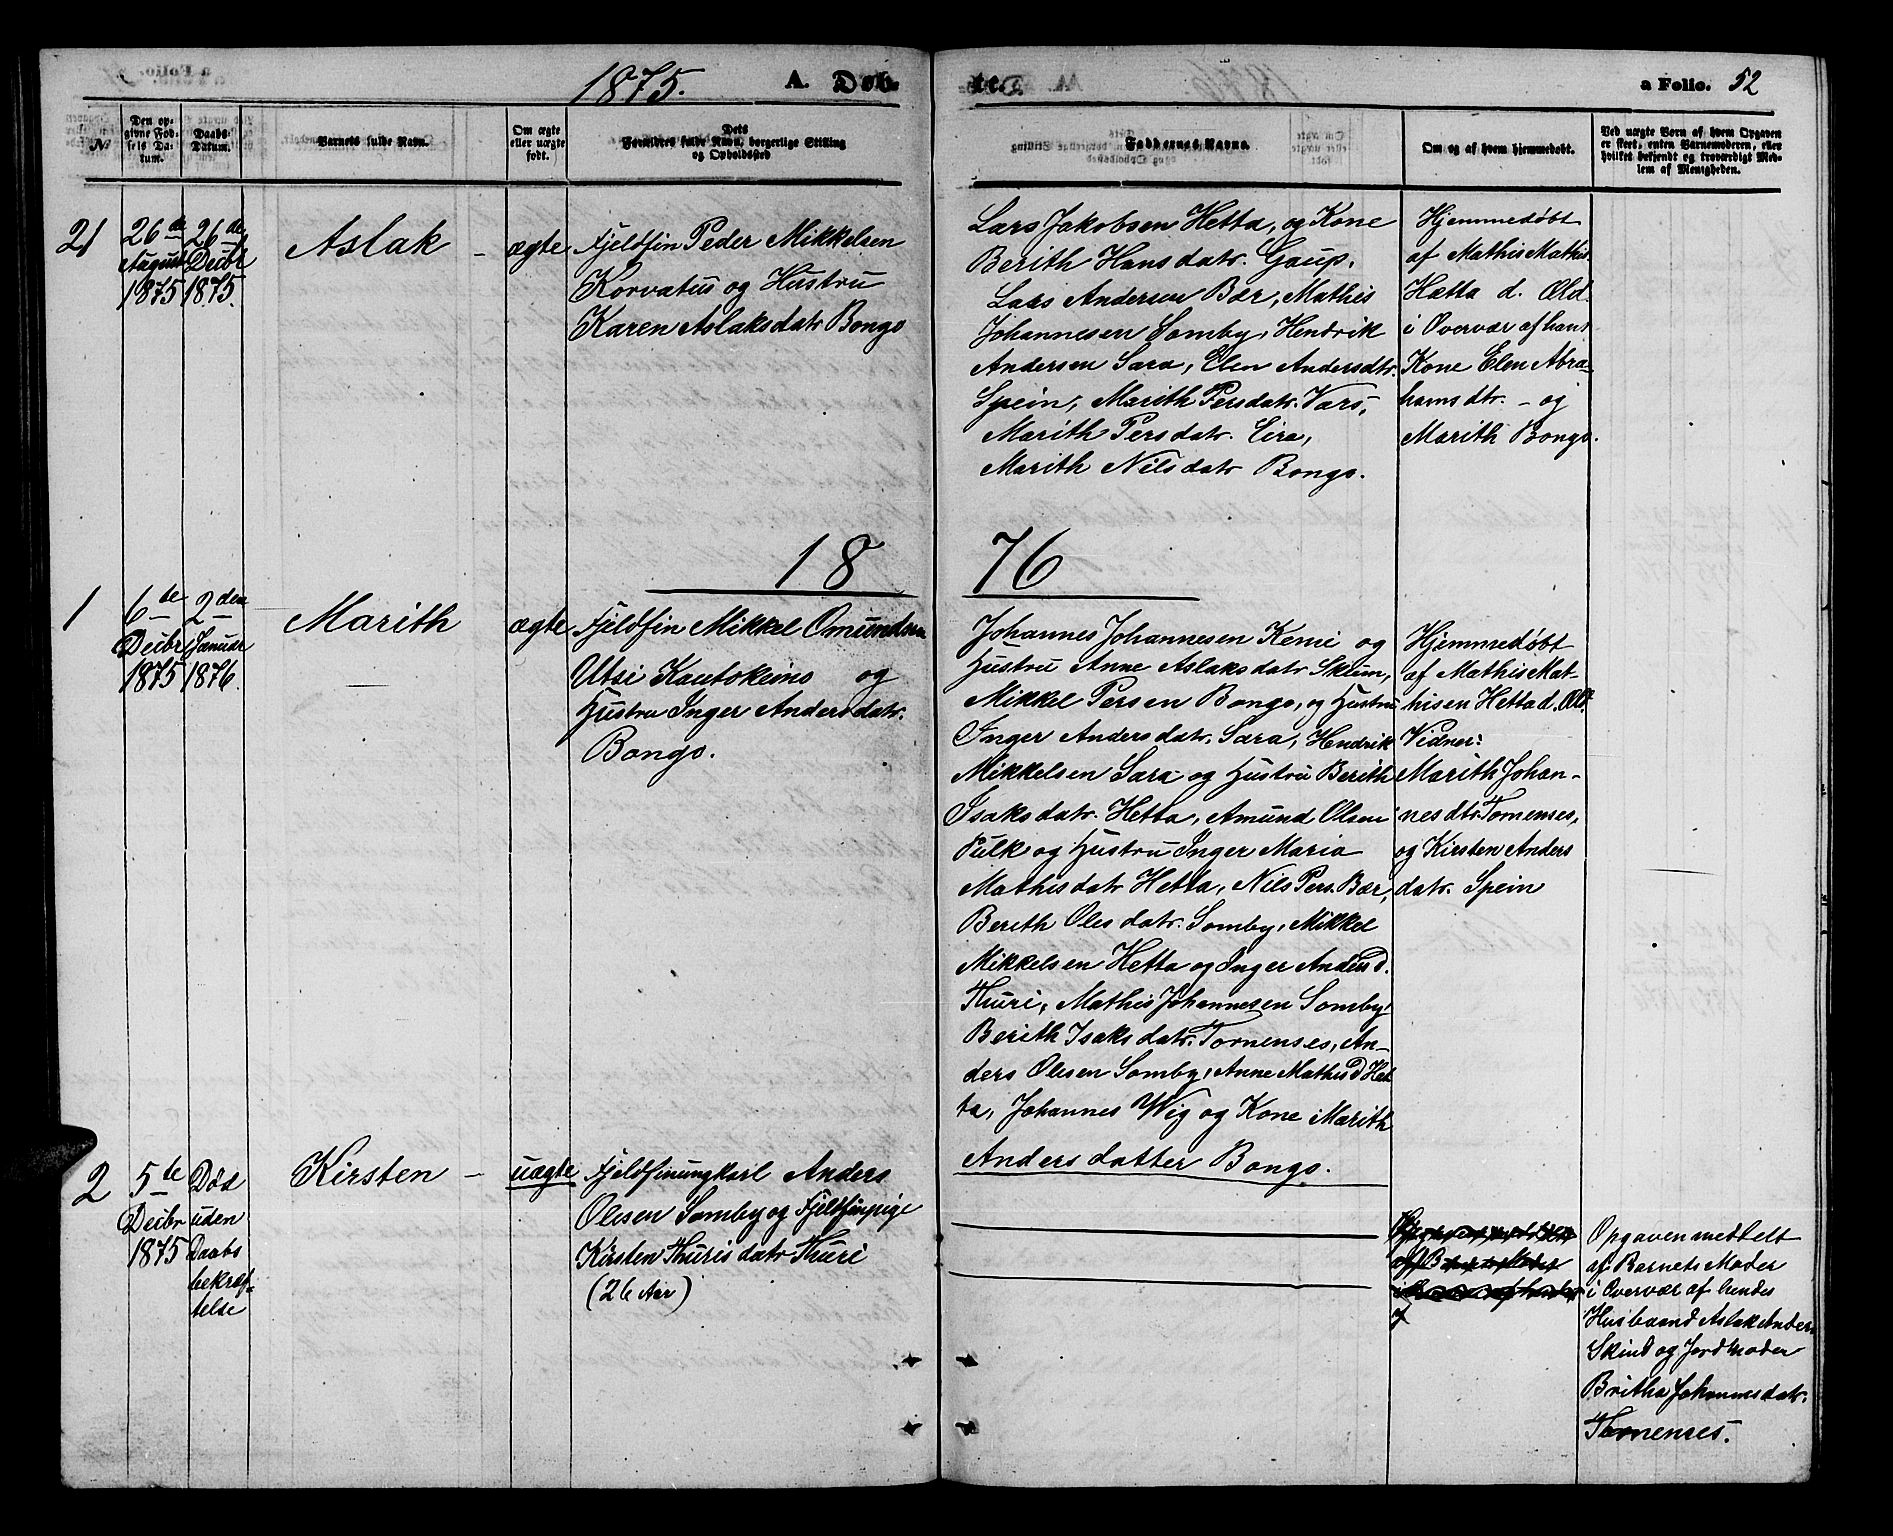 1875. A. Døb-
te. a Folio. 52
№
Den op-
givne Fød-
sels Da-
tum.
Daabs-
Datum.
Barnets fulde Navn.
Om ægte
eller uægte
født.
Dets
Forældres fulde Navn, borgerlige Stilling
og Opholdssted
Faddernes Navne.
Om og af hvem hjemmedøbt.
Ved uægte Børn af hvem Opgaven
er skeet, enten Barnemoderen, eller
hvilket bekjendt og troværdigt Med-
lem af Menigheden.
21
26de
August
1875
26de
Decbr
1875.
Aslak
ægte
Fjeldfin Peder Mikkelsen
Korvatus og Hustru
Karen Aslaksdatr Bongo
Lars Jakobsen Hetta, og Kone
Berith Hansdatr. Gaup,
Lars Andersen Bær, Mathis
Johannesen Somby, Hendrik
Andersen Sara, Elen Andersdtr.
Spein, Marith Persdatr. Vars,
Marith Persdatr. Eira,
Marith Nilsdatr Bongo.
Hjemmedøbt
af Mathis Mathis.
Hætta d. Æld.
i Overvær af hans
Kone Elen Abra-
hamsdtr. - og
Marith Bongo.
18 76
1
6te
Decbr
1875
2den
Januar
1876.
Marith
ægte
Fjeldfin Mikkel Omundsen
Utsi Kautokeino og
Hustru Inger Andersdatr.
Bongo.
Johannes Johannesen Kemi og
Hustru Anne Aslaksdatr Sklum,
Mikkel Persen Bongo, og Hustru
Inger Andersdatr. Sara, Hendrik
Mikkelsen Sara og Hustru Berith
Isaksdatr. Hetta, Amund Olsen
Pulk og Hustru Inger Maria
Mathisdatr Hetta, Nils Pers. Bær,
Berith Olesdatr. Somby, Mikkel
Mikkelsen Hetta og Inger Anders d.
Thuri, Mathis Johannesen Somby,
Berith Isaksdatr. Tornenses, An-
ders Olesen Somby, Anne Mathis D Het-
ta, Johannes Wig og Kone Marith
Andersdatter Bongo.
Hjemmedøbt
af Mathis Mat-
hisen Hetta d. Æld.
Vidner:
Marith Johan-
nesdtr Tornenses,
og Kirsten Anders
datr. Spein
2
5te
Decbr
1875
Død
uden
Daabs
bekræf-
telse
Kirsten
uægte
Fjeldfinungkarl Anders
Olesen Somby og Fjeldfinpige
Kirsten Thurisdatr Thuri
(26 Aar)
Opgaven meddelt
af Barnets Moder
i Overvær af hendes
Husbaand Aslak Anders.
Skind og Jordmoder
Britha Johannesdatr.
Tornenses.